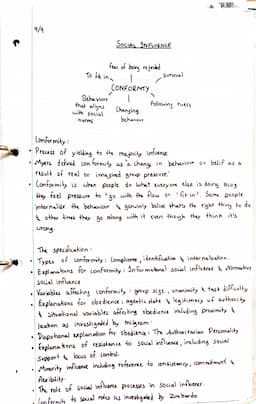 9/9
SOCIAL INFLUENCE
fear of being rejected
To fit in
survival
CONFORMITY
Behaviour that aligns with social norms
Changing behaviour
Following rules
Conformity:
• Process of yielding to the majority influence
• Myers defined conformity as 'a change in behaviour or belief as a
result of real or imagined group pressure.'
• Conformity is when people do what everyone else is doing bcus
they feel pressure to "go with the flow" or "fit in". Some people
internalise the behaviour & genuinely believe that's the right thing to do
& other times they go along with it even though they think it's
wrong.
The specification:
• Types of conformity: Compliance, identification & internalisation.
• Explanations for conformity: Informational social influence & Normative
social influence
• Variables affecting conformity: group size, unanimity & task difficulty
• Explanations for obedience: agentic state & legitimacy of authority
& Situational variables affecting obedience including proximity &
location as investigated by Milgram.
• Dispositional explanation for obedience: The Authoritarian Personality
• Explanations of resistance to social influence, including social
support & locus of control.
• Minority influence including reference to consistency, commitment &
flexibility.
• The role of social influence processes in social
Conformity to social roles as investigated by Zimbardo